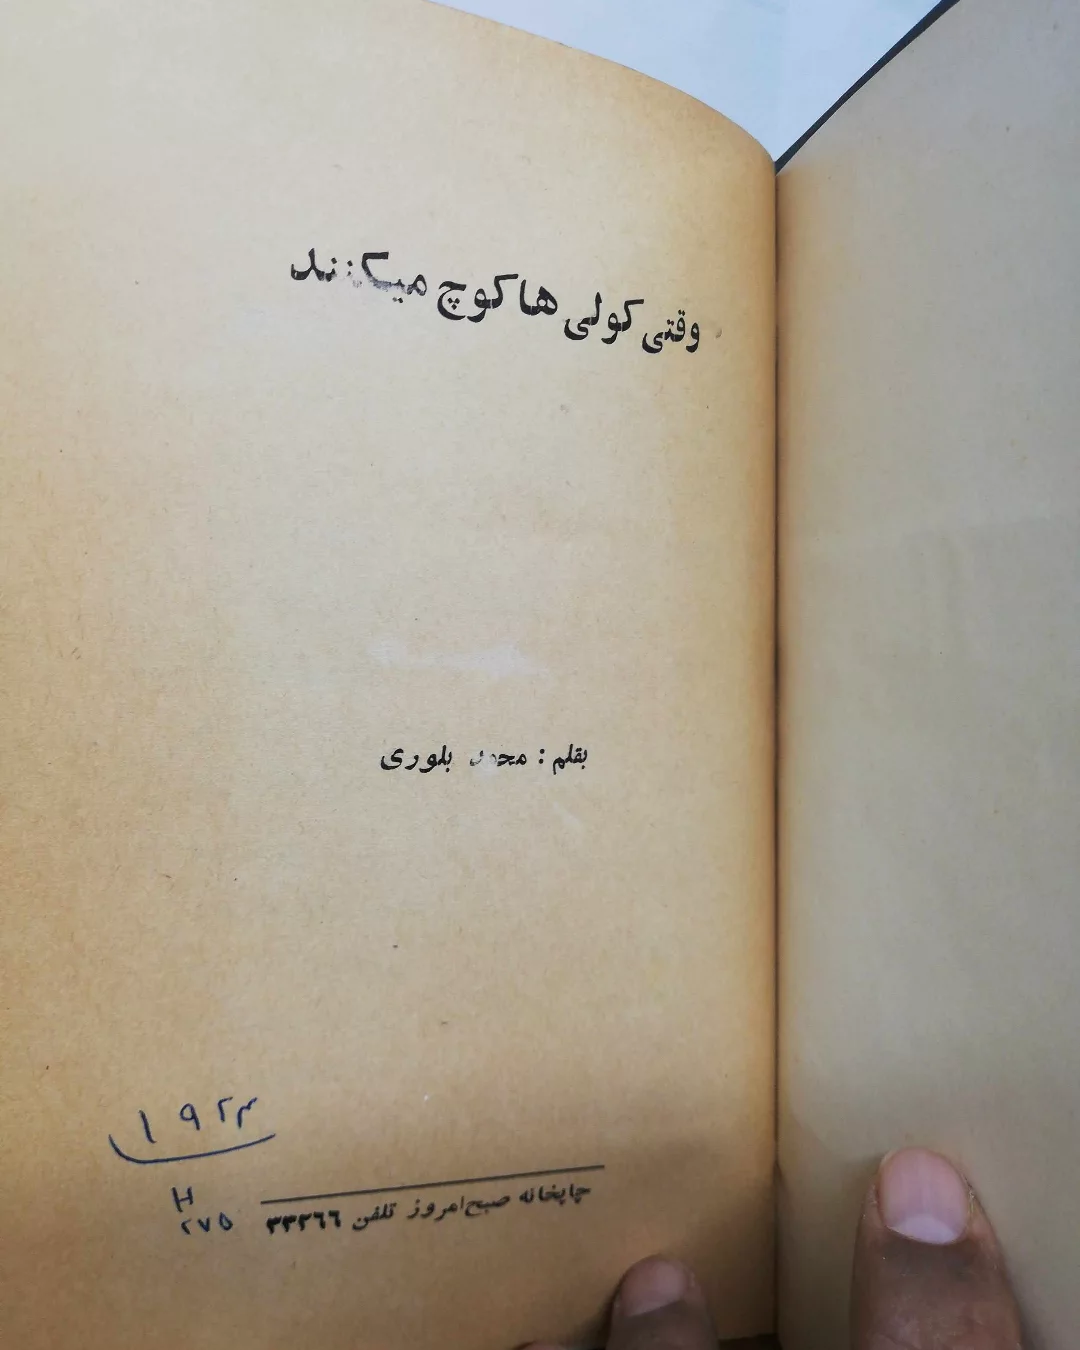 وقتی کولی ها کوچ میکنند
بقلم : محمد بلوری
۱۹۲۳
H
۲۷۵
چاپخانه صبح امروز تلفن ۳۳۲۶۶